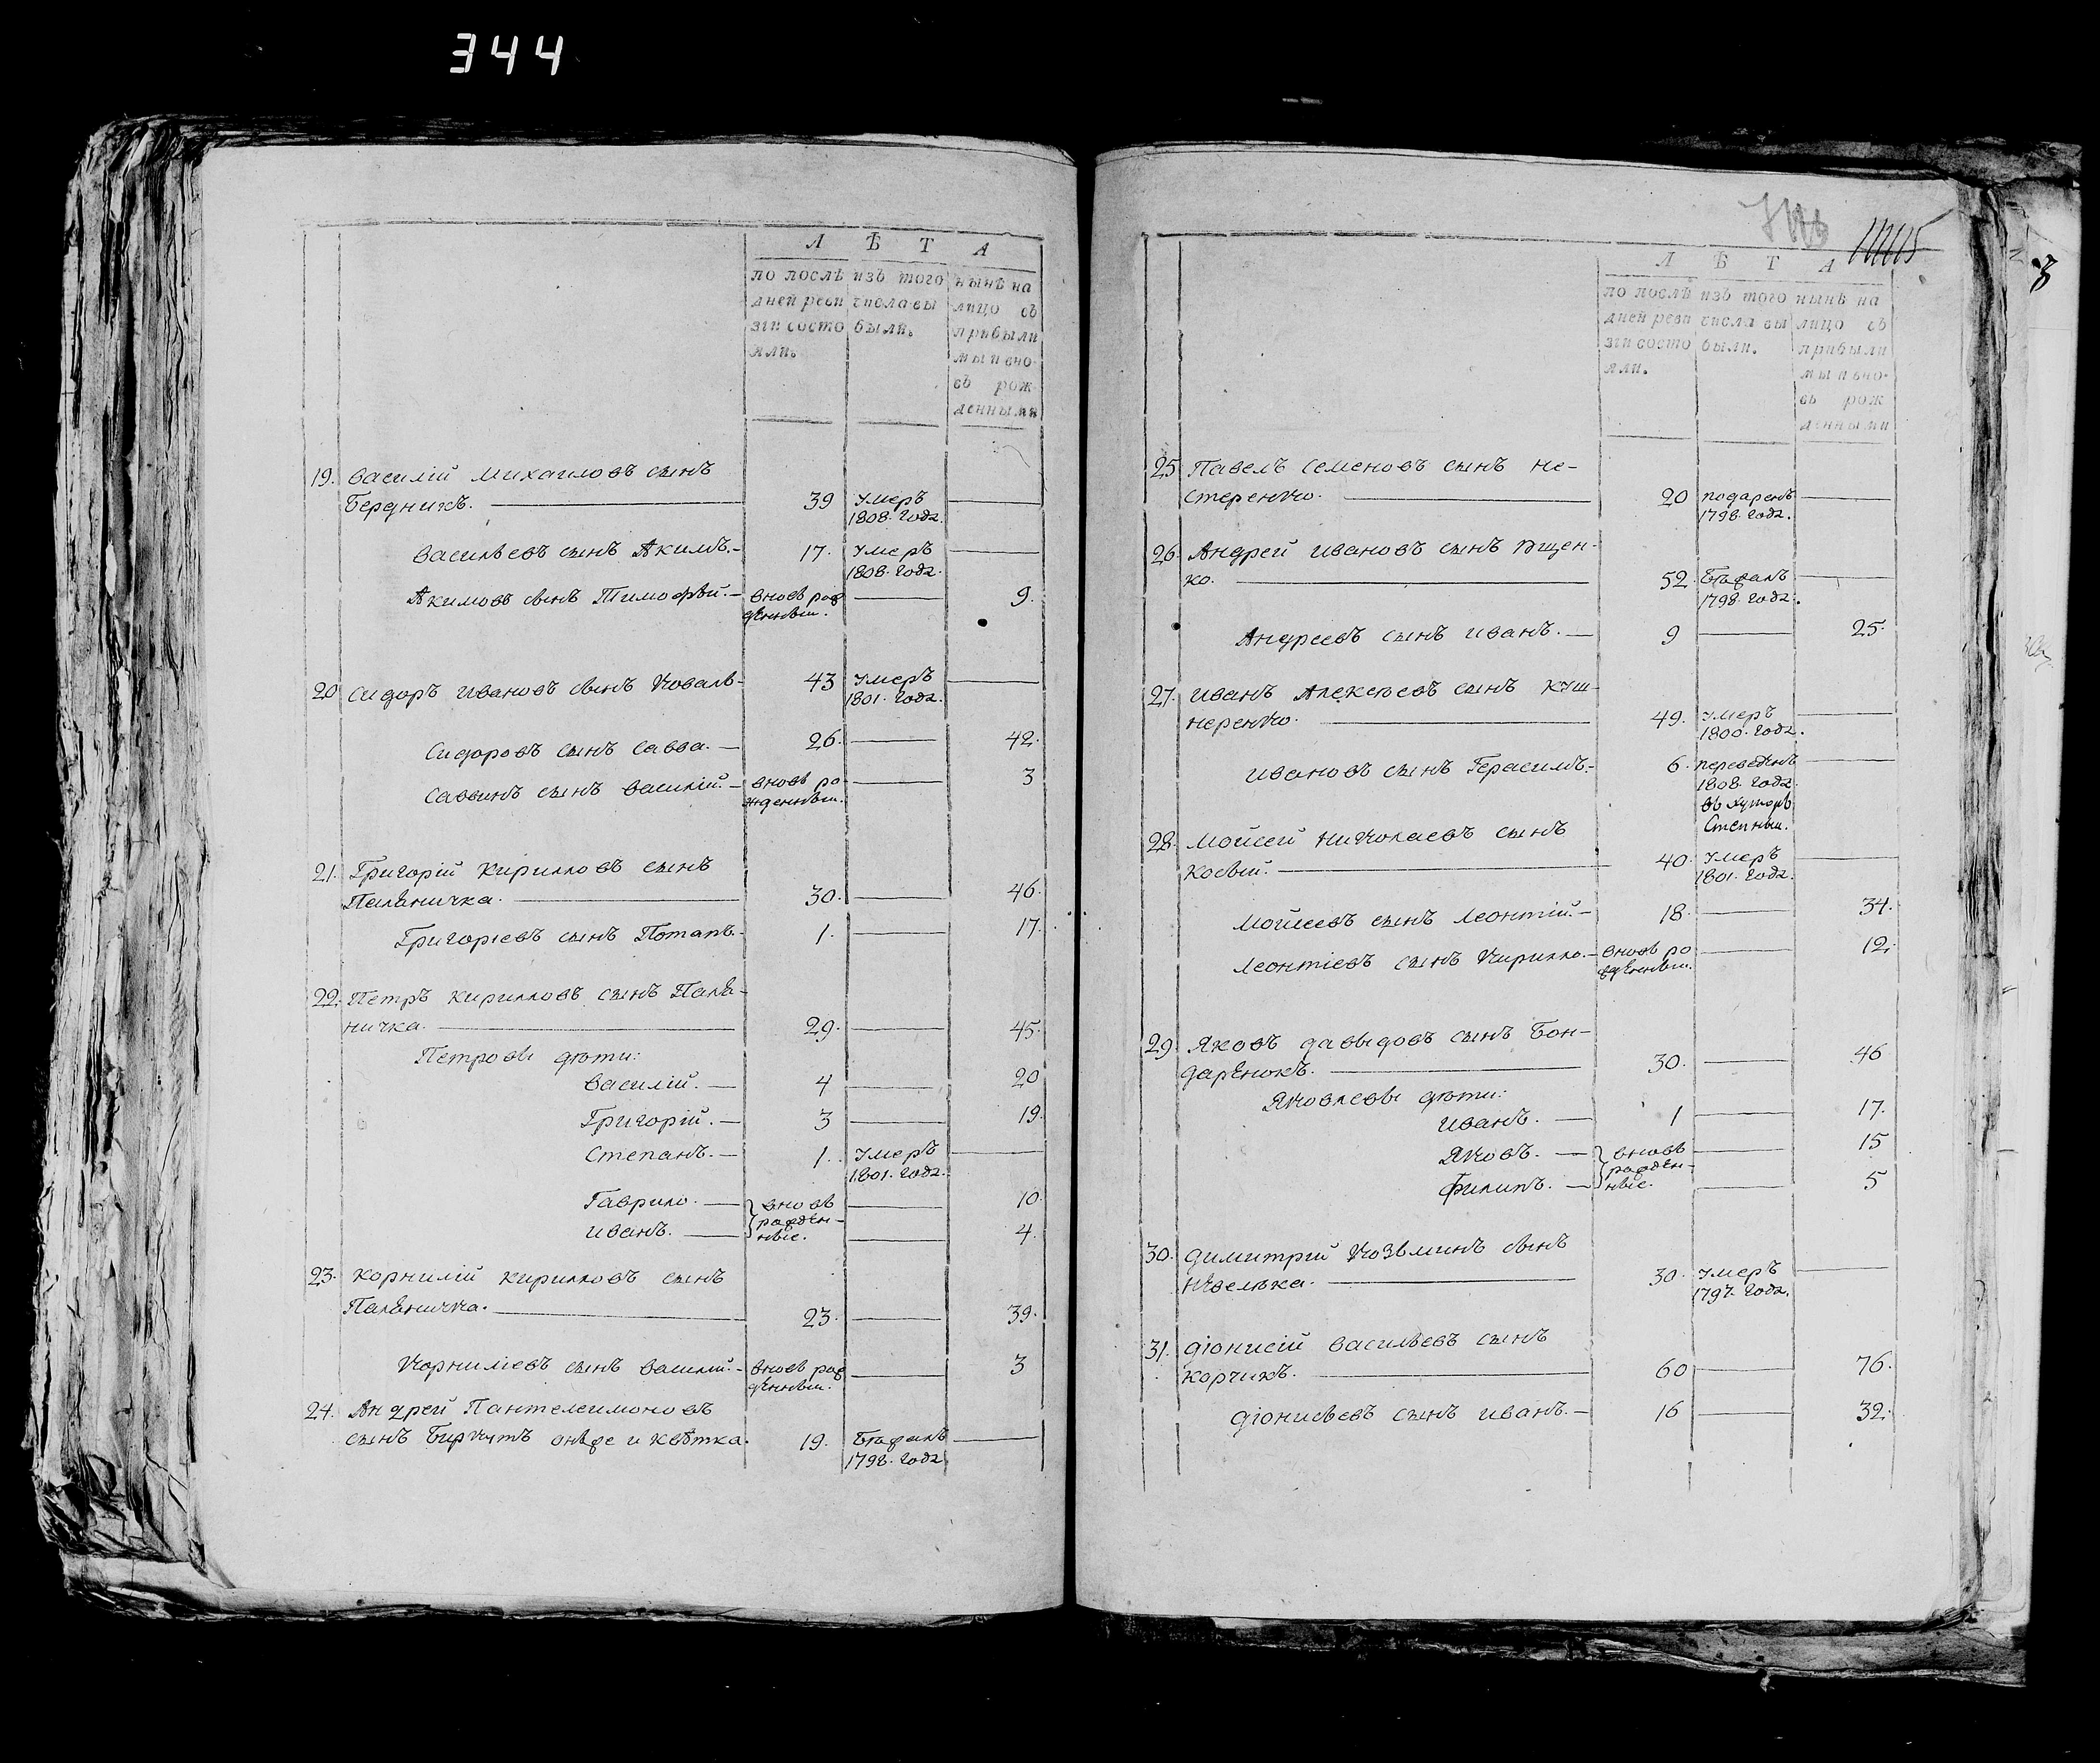 344
Л Ѣ Т А
по послѣ изъ того нынѣ на
дней реви числа вы лицо съ
зіи состо были. прибыли
яли. мы и вно-
въ рож
денными
19. Василій Михаиловъ сынъ
Бердникъ. 39 Умеръ
1808. года.
Васильевъ сынъ Акимъ. 17. Умеръ
1808. года.
Акимовъ сынъ Тимофѣй. вновь рож 9.
денный.
20 Сидоръ Ивановъ сынъ Коваль 43 Умеръ
1801. года.
Сидоровъ сынъ Савва. 26. 42.
Саввинъ сынъ Василій. вновь ро 3
жденный.
21. Григорій Кирилловъ сынъ
Паляничка. 30. 46.
Григоріевъ сынъ Потапъ. 1. 17.
22. Петръ Кирилловъ сынъ Паля-
ничка. 29. 45.
Петровы дѣти:
Василій. 4 20
Григорій. 3 19.
Степанъ. 1. Умеръ
1801. года.
Гаврило. вновь 10.
рожден-
Иванъ. ные. 4.
23. Корнилій Кирилловъ сынъ
Паляничка. 23. 39.
Корниліевъ сынъ Василій. вновь рож 3
денный.
24. Андрей Пантелеимоновъ
сынъ Биркутъ онъже и Квѣтка. 19. Бѣжалъ
1798. года
115
Л Ѣ Т А
по послѣ изъ того нынѣ на
дней реви числа вы лицо съ
зіи состо были. прибыли
яли. мы и вно-
въ рож
денными
25 Павелъ Семеновъ сынъ Не-
стеренко. 20 подаренъ
1798. года.
26. Андрей Ивановъ сынъ Ищен-
ко. 52. Бѣжалъ
1798. года.
Андреевъ сынъ Иванъ. 9 25.
27. Иванъ Алексѣевъ сынъ Куш-
неренко. 49. Умеръ
1800. года.
Ивановъ сынъ Герасимъ. 6. переведенъ
1808. года
въ хуторъ
Степный.
28. Мойсей Николаевъ сынъ
Косый. 40. Умеръ
1801. года.
Мойсеевъ сынъ Леонтій. 18. 34.
Леонтіевъ сынъ Кирилло. вновь ро 12.
жденный.
29. Яковъ Давыдовъ сынъ Бон-
даренокъ. 30. 46
Яковлевы дѣти:
Иванъ. 1 17.
Яковъ. вновь 15
рожден-
Филипъ. ные. 5
30. Димитрій Козьминъ сынъ
30. Умеръ
1797. года.
31. Діонисій Васильевъ сынъ
Корчикъ. 60 76.
Діонисьевъ сынъ Иванъ. 16 32.